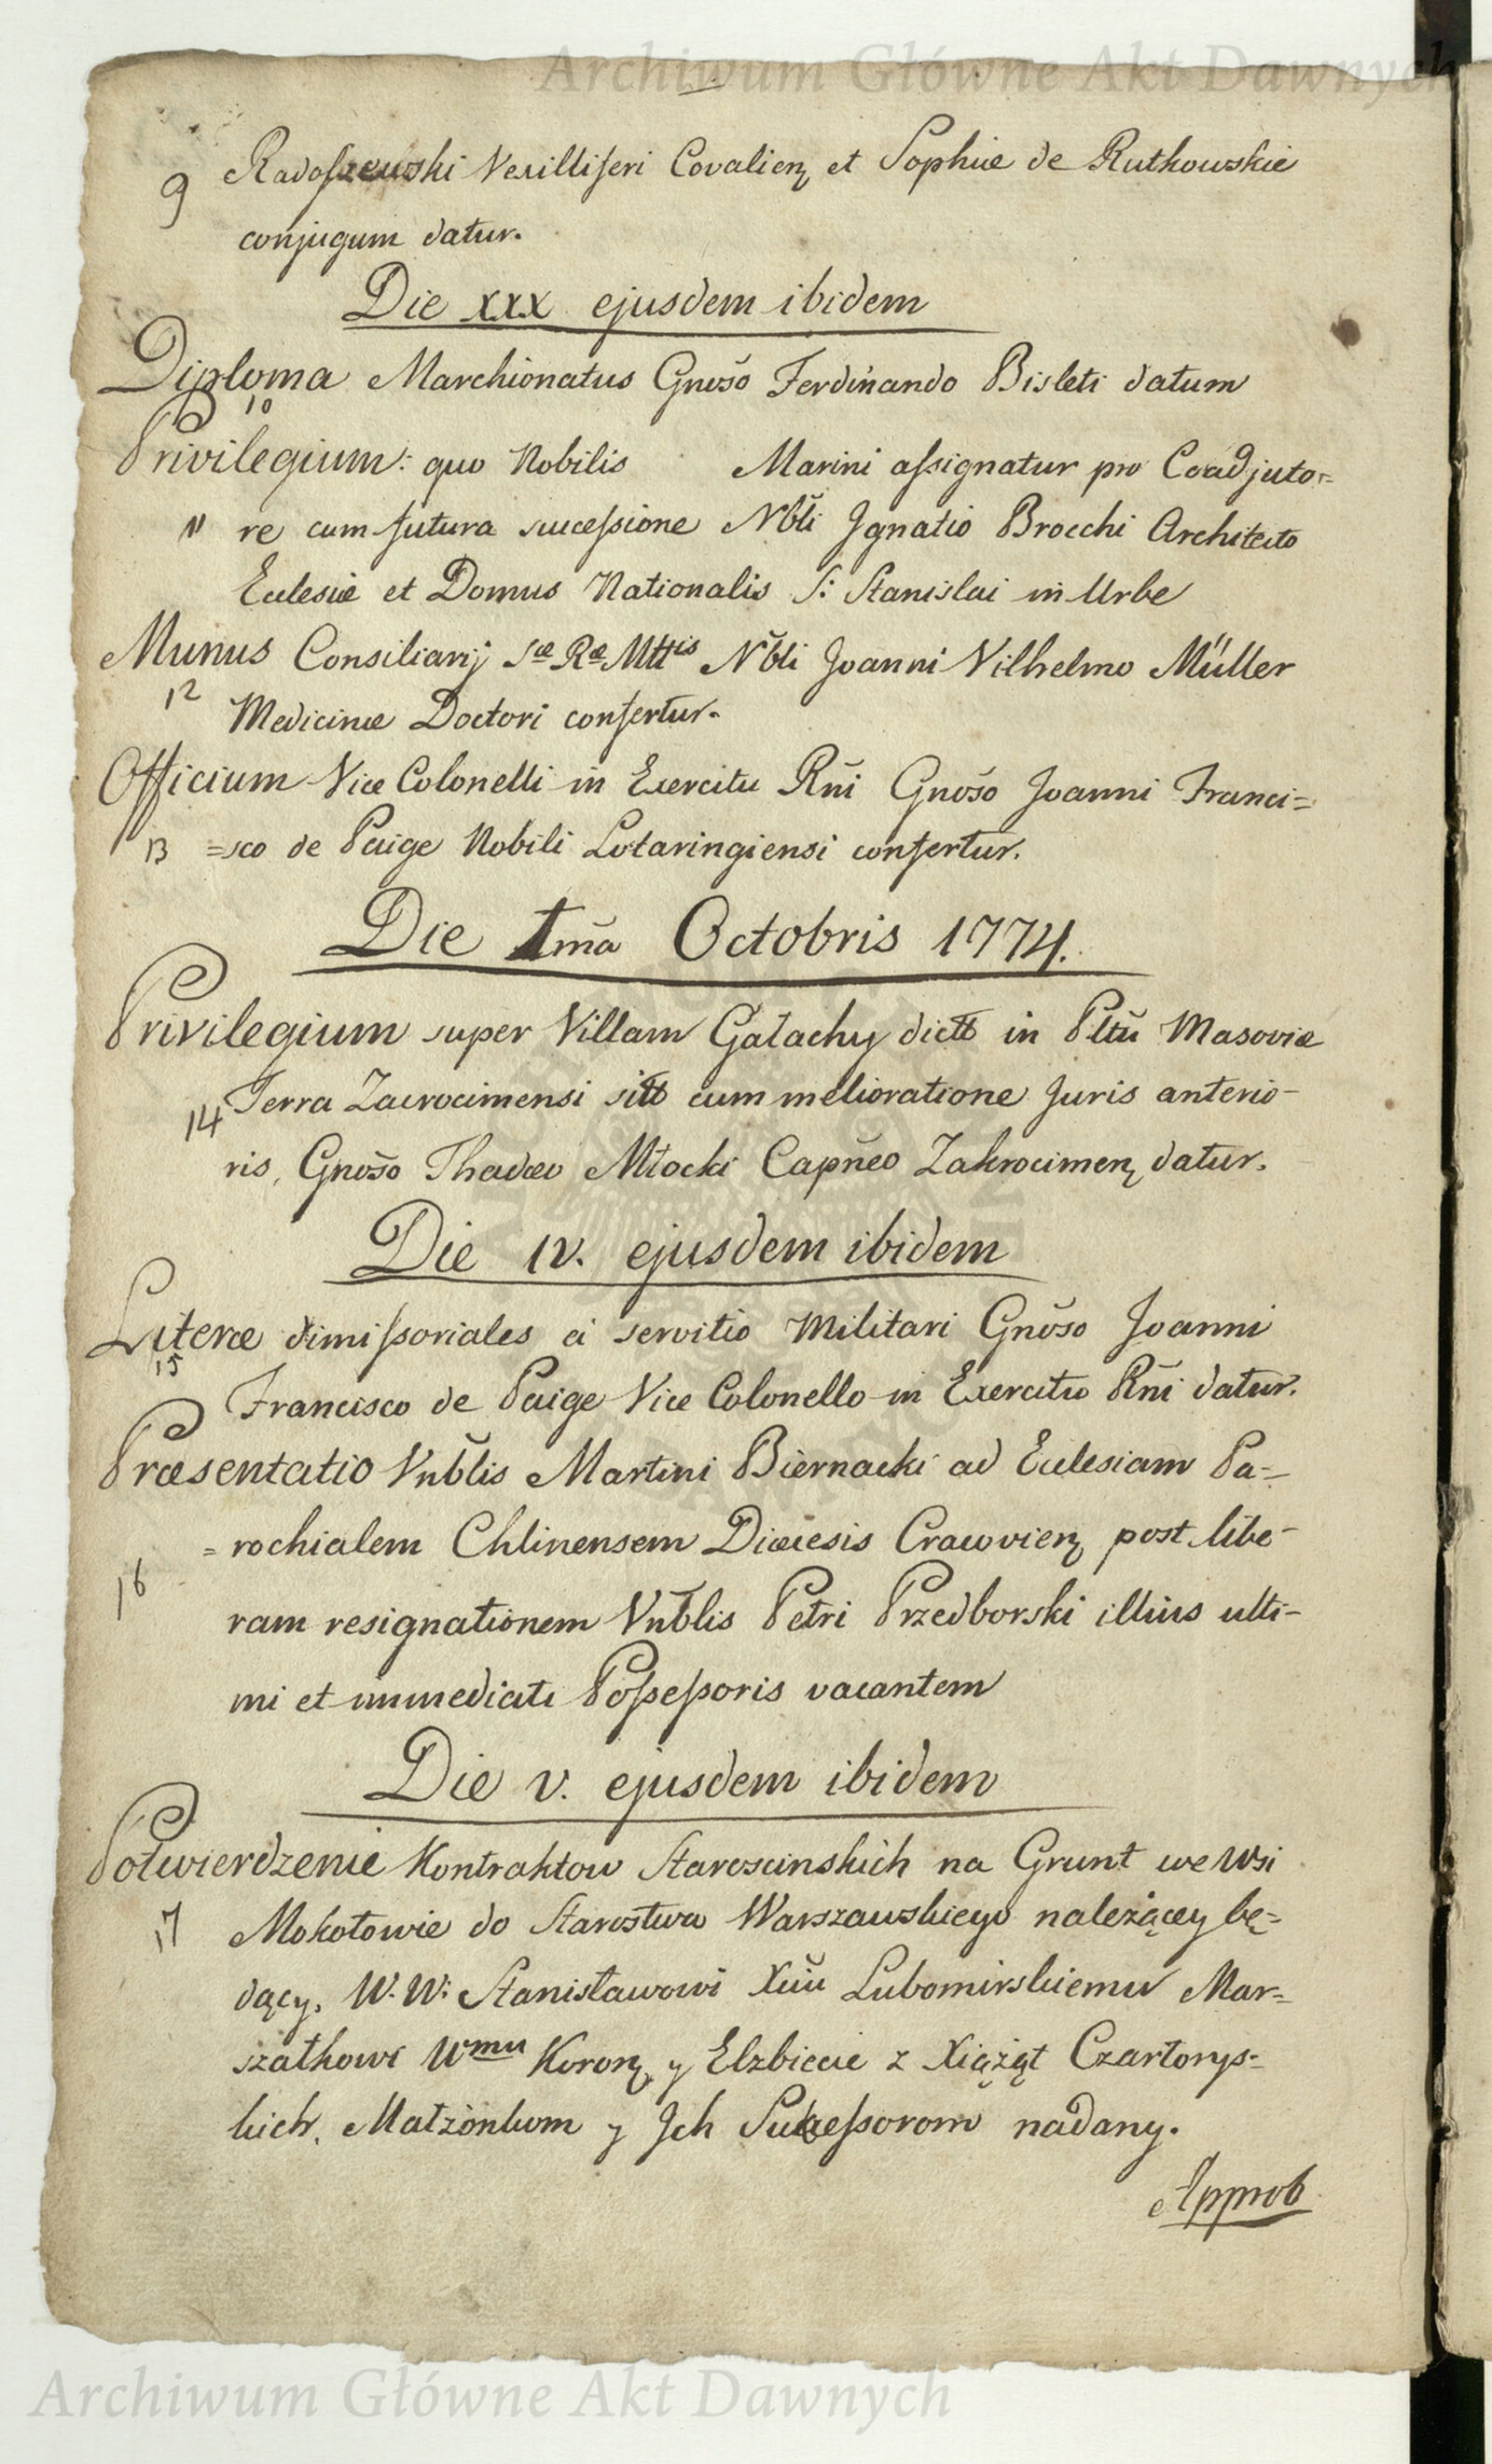 Archiwum Główne Akt Dawnych
9 Radoszewski Vexilliferi Covalien et Sophiæ de Rutkowskie
conjugum datur.
Die xxx ejusdem ibidem
Diploma Marchionatus Gnŏso Ferdinando Bisleti datum
10
Privilegium: quo Nobilis Marini assignatur pro Coadjuto=
11 re cum futura successione Nbli Ignatio Brocchi Architecto
Eclesiæ et Domus Nationalis S: Stanislai in Urbe
Munus Consiliarij Sæ Ræ Mttis Nbli Joanni Vilhelmo Müller
12 Medicinæ Doctori confertur.
Officium Vice Colonelli in Exercitu Rñi Gnŏso Joanni Franci=
13 =sco de Paige Nobili Lotaringiensi confertur.
Die 1mã Octobris 1774.
Privilegium super Villam Gałachy dictt in Pltũ Masoviæ
14 Terra Zacrocimensi sitt cum melioratione Juris anterio-
ris, Gnŏso Thadæo Młocki Capñeo Zakrocimen datur.
Die IV. ejusdem ibidem
Literæ dimissoriales a servitio Militari Gnŏso Joanni
15 Francisco de Paige Vice Colonello in Exercitu Rñi datur.
Præsentatio Vnblis Martini Biernacki ad Eclesiam Pa=
=rochialem Chlinensem Diæcesis Cracovien post libe-
16 ram resignationem Vnblis Petri Przedborski illius ulti-
mi et immediati Possessoris vacantem
Die V. ejusdem ibidem
Potwierdzenie Kontraktow Staroscinskich na Grunt we Wsi
17 Mokotowie do Starostwa Warszawskiego należącey bę=
dący. W. W: Stanisławowi Xciu Lubomirskiemu Mar=
szałkowi Wmu Koron y Elzbiecie z Xiążąt Czartorys=
kich, Małżonkom y Jch Sukcessorom nadany.
Approb
Archiwum Główne Akt Dawnych